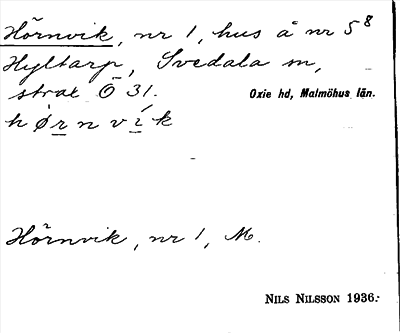 Hörnvik, nr 1, hus å nr 5⁸
Hyltarp, Svedala sn,
strax Ö 31.
Oxie hd, Malmöhus län.
h ø r n v í k
Hörnvik, nr 1, M.
NILS NILSSON 1936.